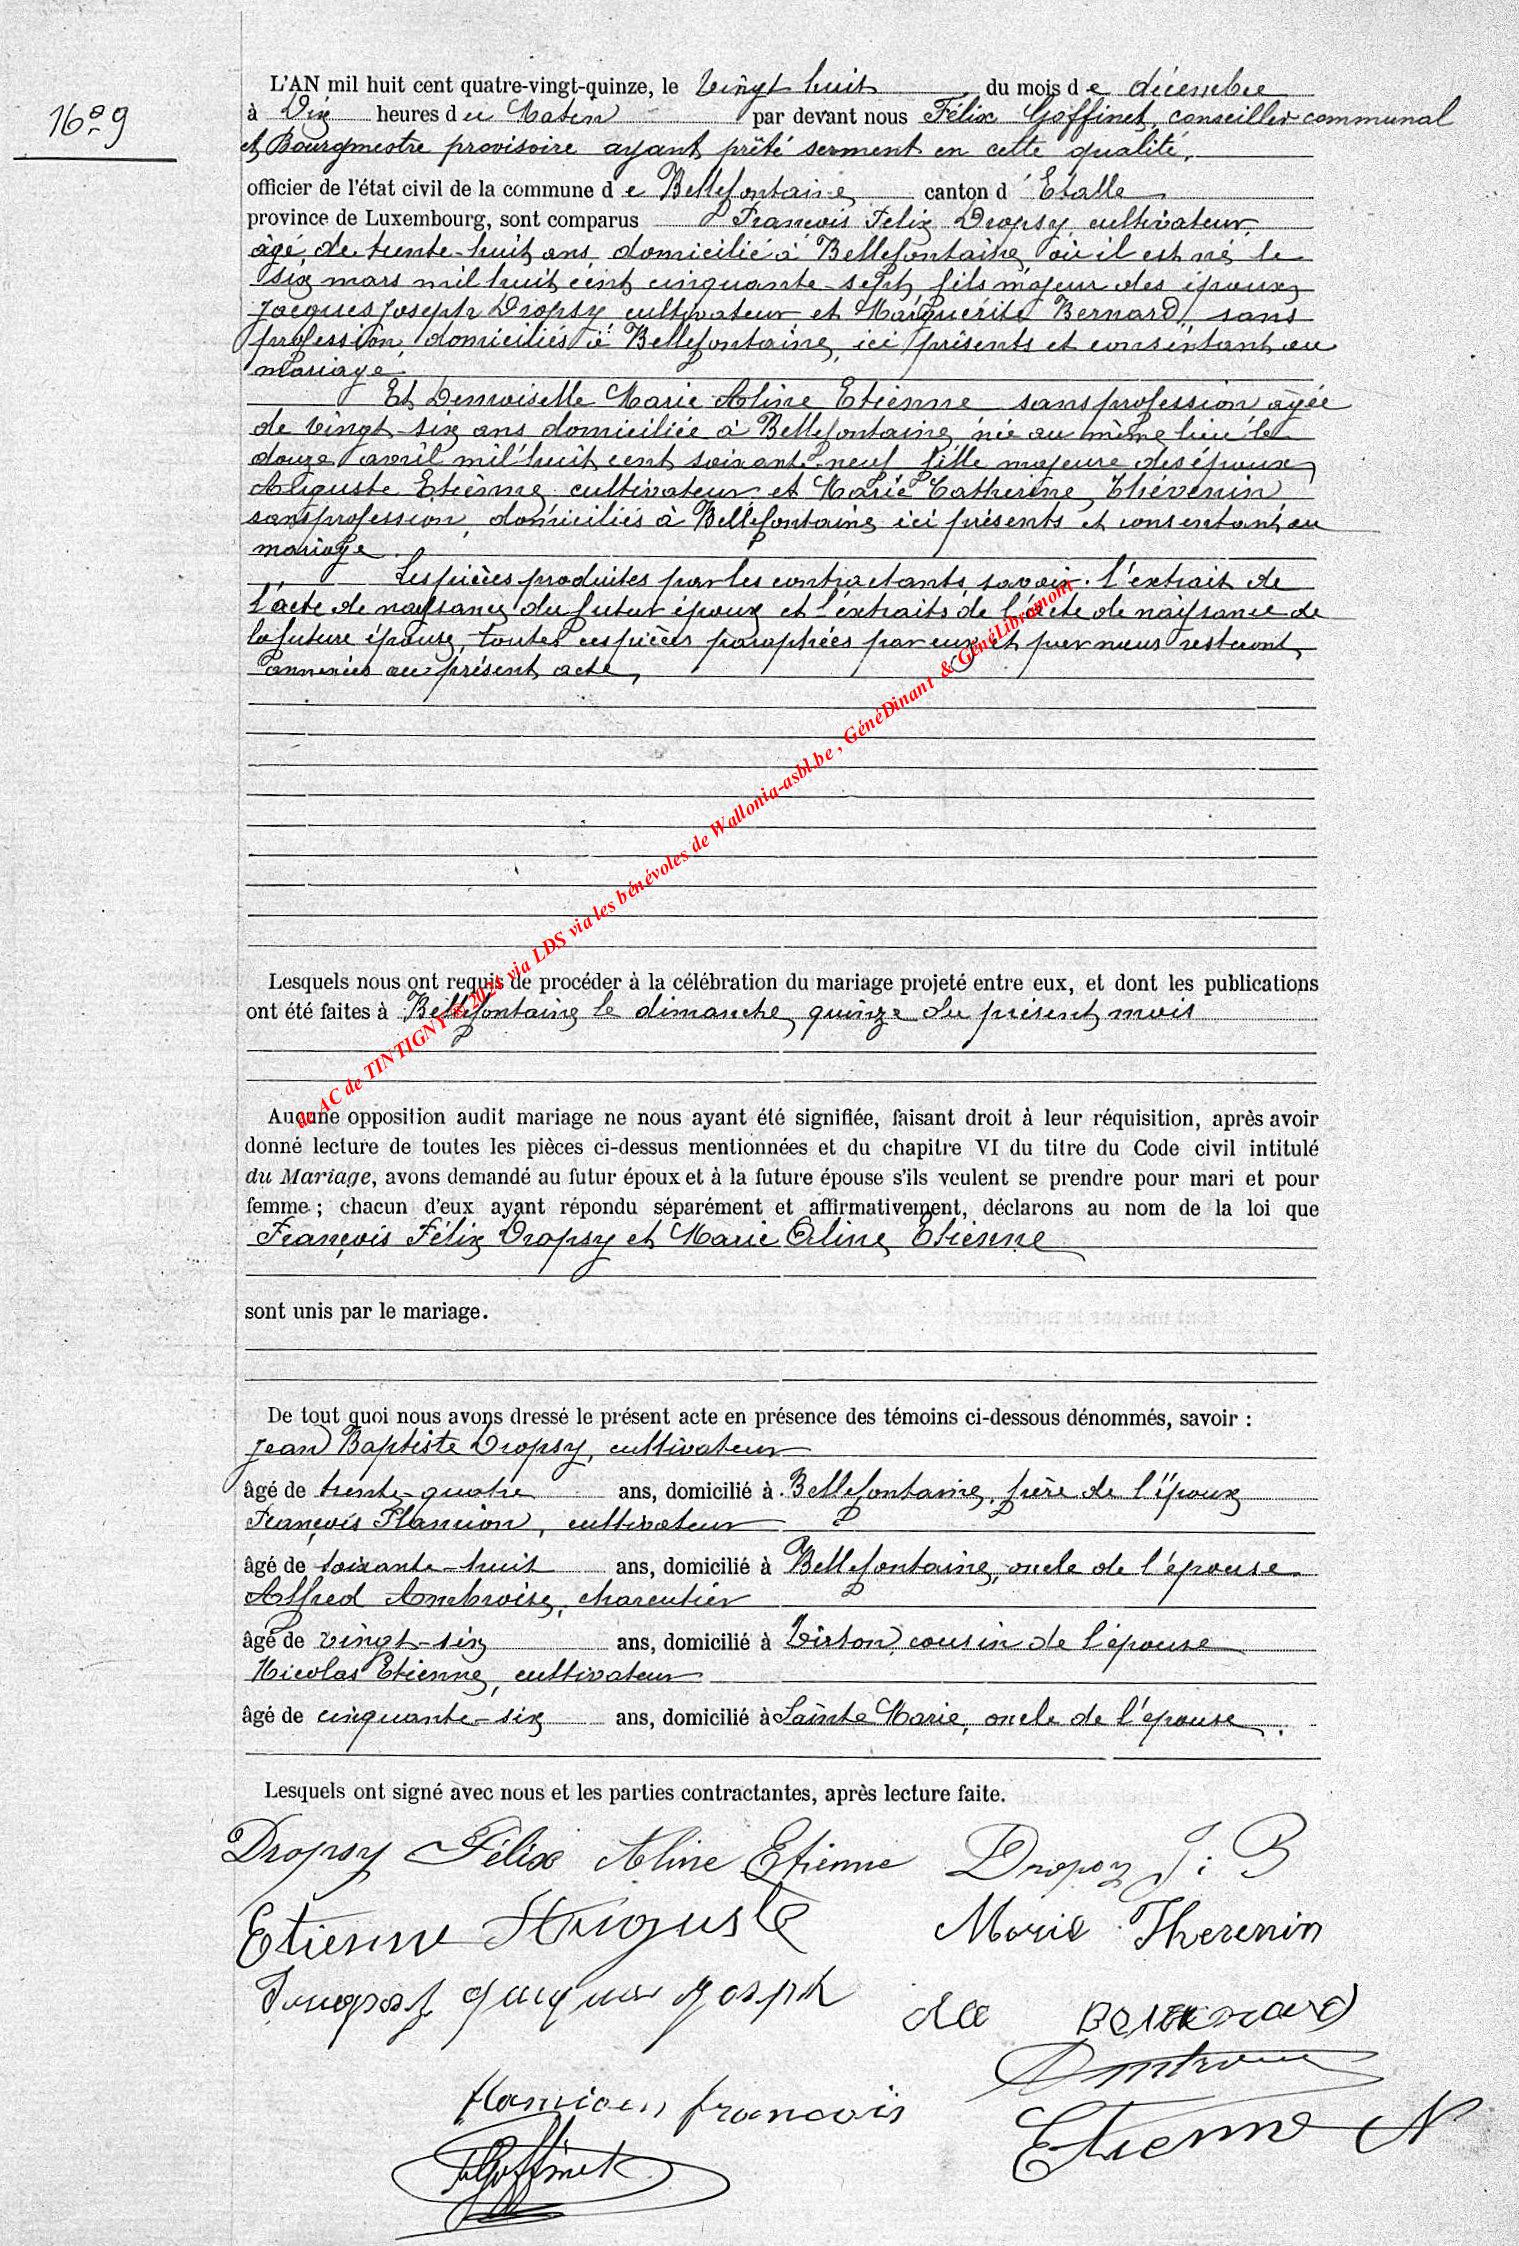 16e 9
L'AN mil huit cent quatre-vingt-quinze, le Vingt huit du mois de décembre
à Dix heures du Matin par devant nous Félix Goffinet, conseiller communal
et Bourgmestre provisoire ayant prêté serment en cette qualité,
officier de l'état civil de la commune de Bellefontaine canton d'Etalle
province de Luxembourg, sont comparus François Felix Dropsy, cultivateur,
âgé de trente-huit ans domicilié à Bellefontaine où il est né le
six mars mil huit cent cinquante-sept, fils majeur des époux
Jacques Joseph Dropsy cultivateur et Marguérite Bernard, sans
profession, domiciliés à Bellefontaine, ici présents et consentant au
mariage.
Et Demoiselle Marie Aline Etienne sans profession âgée
de vingt-six ans domiciliée à Bellefontaine née au même lieu le
douze avril mil huit cent soixante-neuf fille majeure des époux
Auguste Etienne cultivateur et Marie Catherine Thévenin
sans profession, domiciliés à Bellefontaine ici présents et consentant au
mariage.
Les pièces produites par les contractants savoir. l'extrait de
l'acte de naissance du futur époux et l'extraits de l'acte de naissance de
la future épouse, toutes ces pièces paraphées par eux et par nous resteront
annexées au présent acte,
de AC de TINTIGNY © 2024 via LDS via les bénévoles de Wallonia-asbl.be , GénéDinant & GénéLibramont
Lesquels nous ont requis de procéder à la célébration du mariage projeté entre eux, et dont les publications
ont été faites à Bellefontaine le dimanche quinze du présent mois
Aucune opposition audit mariage ne nous ayant été signifiée, faisant droit à leur réquisition, après avoir
donné lecture de toutes les pièces ci-dessus mentionnées et du chapitre VI du titre du Code civil intitulé
du Mariage, avons demandé au futur époux et à la future épouse s'ils veulent se prendre pour mari et pour
femme ; chacun d'eux ayant répondu séparément et affirmativement, déclarons au nom de la loi que
François Félix Dropsy et Marie Aline Etienne
sont unis par le mariage.
De tout quoi nous avons dressé le présent acte en présence des témoins ci-dessous dénommés, savoir :
Jean Baptiste Dropsy, cultivateur
âgé de trente-quatre ans, domicilié à Bellefontaine, frère de l'époux
François Flamion, cultivateur
âgé de soixante-huit ans, domicilié à Bellefontaine, oncle de l'épouse
Alfred Ambroise, charcutier
âgé de vingt-six ans, domicilié à Virton, cousin de l'épouse
Nicolas Etienne, cultivateur
âgé de cinquante-six ans, domicilié à Sainte Marie, oncle de l'épouse.
Lesquels ont signé avec nous et les parties contractantes, après lecture faite.
Dropsy Félix Aline Etienne Dropsy J: B
Etienne Auguste Marie Thevenin
jacques joseph
Bernard
Ambroise
flamion francois
Etienne N
Goffinet